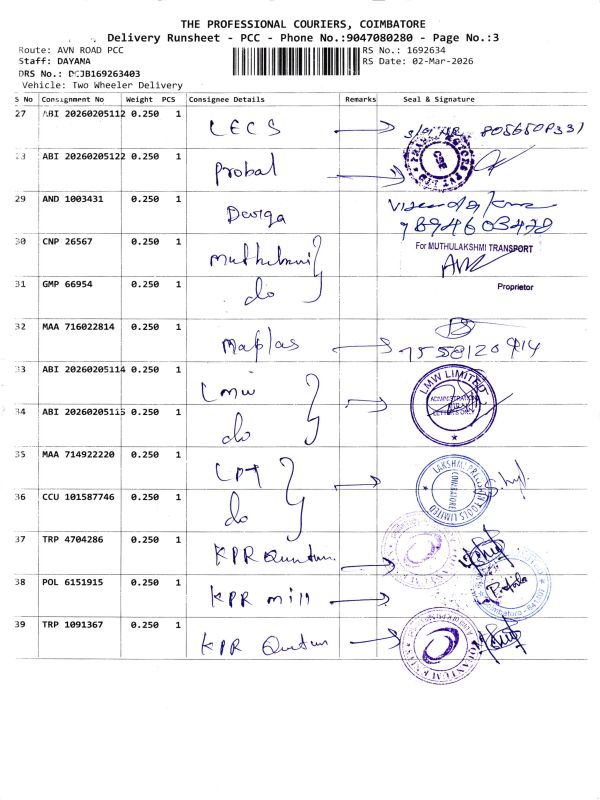 THE PROFESSIONAL COURIERS, COIMBATORE
Delivery Runsheet - PCC - Phone No.:9047080280 - Page No.:3
Route: AVN ROAD PCC
RS No.: 1692634
Staff: DAYAMA
RS Date: 02-Mar-2026
DRS No.: DCJB169263403
Vehicle: Two Wheeler Delivery
S No Consignment No Weight PCS Consignee Details Remarks Seal & Signature
27 ABI 20260205112 0.250 1 LECS
ABI 20260205122 0.250 1 Probal
29 AND 1003431 0.250 1 Durga
7894603478
30 CNP 26567 0.250 1
For MUTHULAKSHMI TRANSPORT
31 GMP 66954 0.250 1 do
Proprietor
32 MAA 716022814 0.250 1 Maplas
7558120914
33 ABI 20260205114 0.250 1 LMW
LMW LIMITED
34 ABI 20260205115 0.250 1 do
35 MAA 714922220 0.250 1 LPT
36 CCU 101587746 0.250 1 do
37 TRP 4704286 0.250 1 KPR
38 POL 6151915 0.250 1 KPR mill
39 TRP 1091367 0.250 1 KPR